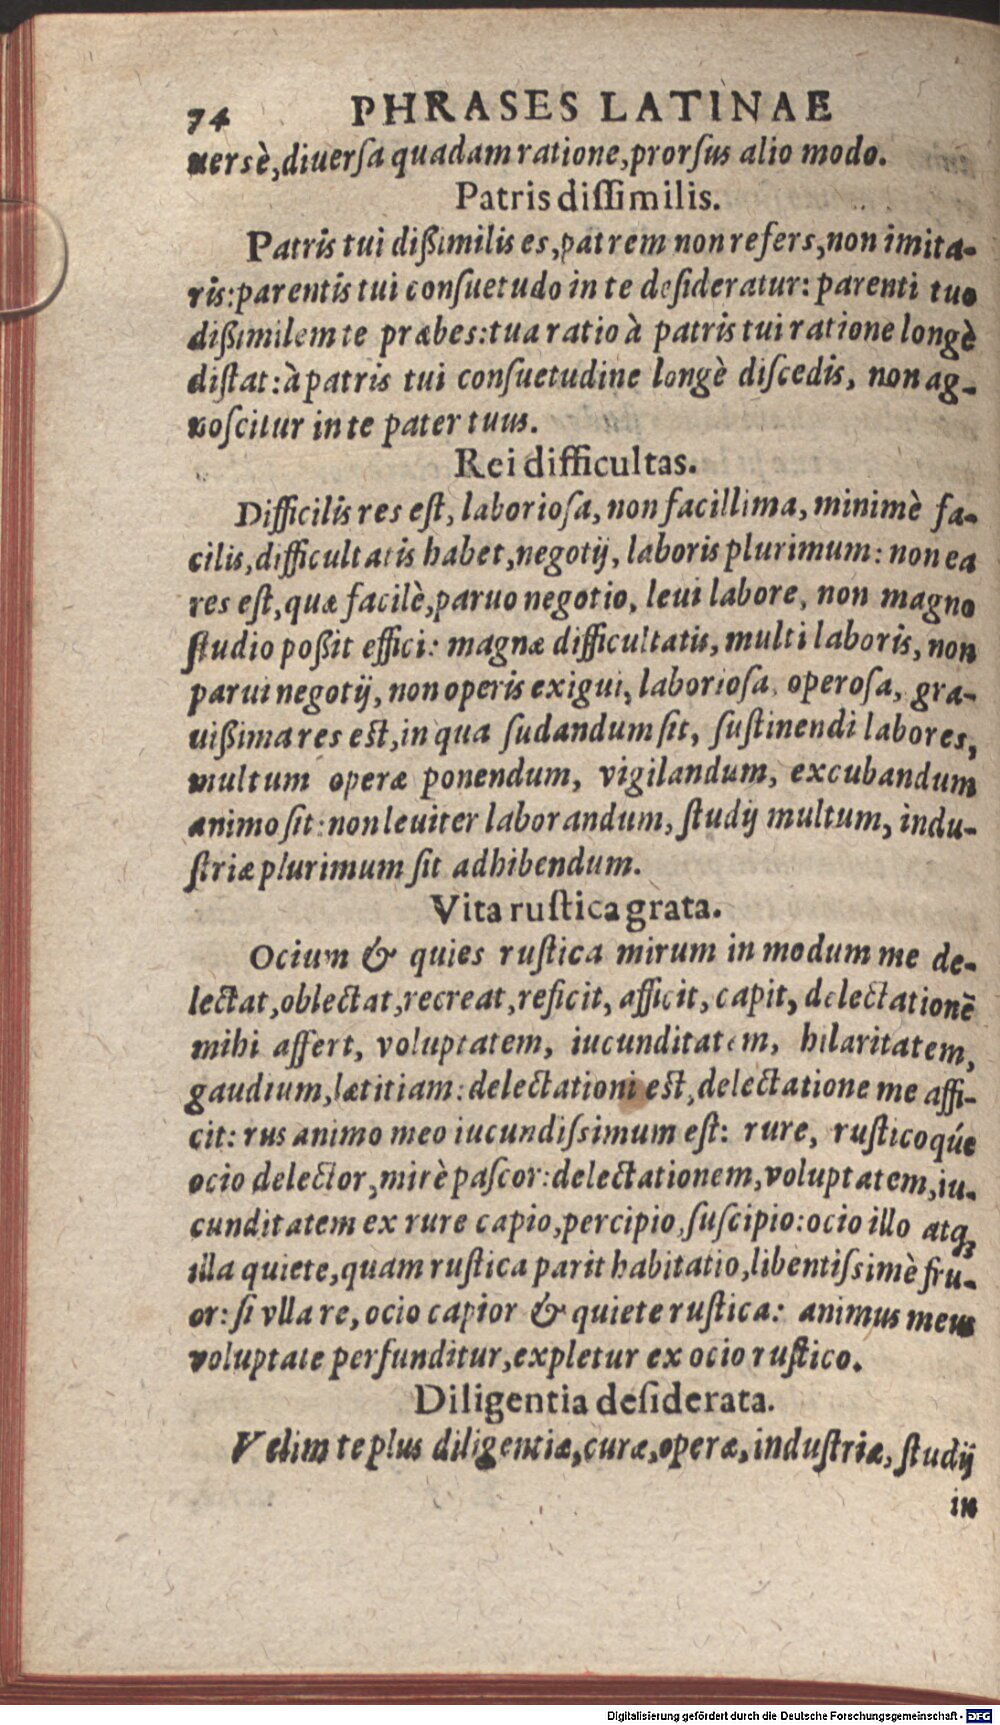 74 PHRASES LATINAE
uersè, diuerſa quadam ratione, prorſus alio modo.
Patris diſſimilis.
Patris tui dißimilis es, patrem non refers, non imita-
ris: parentis tui conſuetudo in te deſideratur: parenti tuo
dißimilem te præbes: tua ratio à patris tui ratione longè
diſtat: à patris tui conſuetudine longè diſcedis, non ag-
noſcitur in te pater tuus.
Rei difficultas.
Difficilis res eſt, laborioſa, non facillima, minimè fa-
cilis, difficultatis habet, negotij, laboris plurimum: non ea
res eſt, quæ facilè, paruo negotio, leui labore, non magno
ſtudio poßit effici: magnæ difficultatis, multi laboris, non
parui negotij, non operis exigui, laborioſa, operoſa, gra-
uißima res est, in qua ſudandum ſit, ſuſtinendi labores,
multum operæ ponendum, vigilandum, excubandum
animo ſit: non leuiter laborandum, ſtudij multum, indu-
ſtriæ plurimum ſit adhibendum.
Vita ruſtica grata.
Ocium & quies ruſtica mirum in modum me de-
lectat, oblectat, recreat, reficit, afficit, capit, delectationē
mihi affert, voluptatem, iucunditatem, hilaritatem,
gaudium, lætitiam: delectationi est, delectatione me affi-
cit: rus animo meo iucundiſsimum eſt: rure, ruſticoqúe
ocio delector, mirè paſcor: delectationem, voluptatem, iu-
cunditatem ex rure capio, percipio, ſuſcipio: ocio illo atqꝫ
illa quiete, quam ruſtica parit habitatio, libentiſsimè fru-
or: ſi vlla re, ocio capior & quiete ruſtica: animus meus
voluptate perfunditur, expletur ex ocio ruſtico.
Diligentia deſiderata.
Velim te plus diligentiæ, curæ, operæ, induſtriæ, ſtudij
in
Digitalisierung gefördert durch die Deutsche Forschungsgemeinschaft - DFG